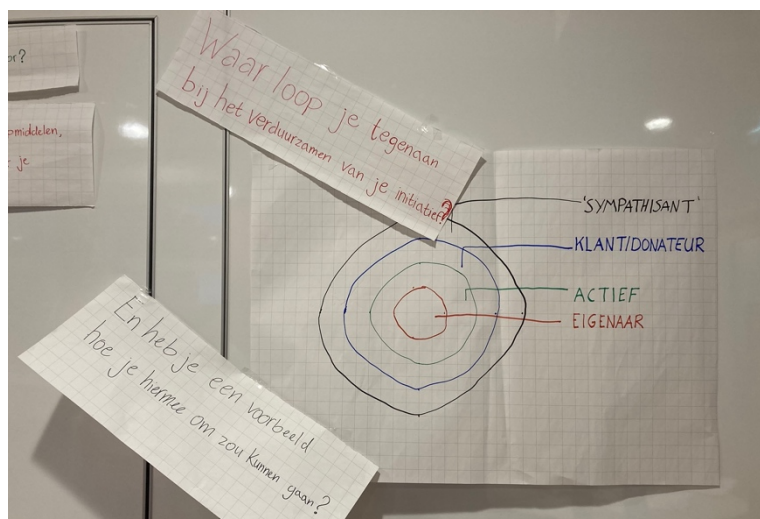 Waar loop je tegenaan
bij het verduurzamen van je initiatief?
'SYMPATHISANT'
KLANT/DONATEUR
ACTIEF
EIGENAAR
En heb je een voorbeeld
hoe je hiermee om zou kunnen gaan?
je